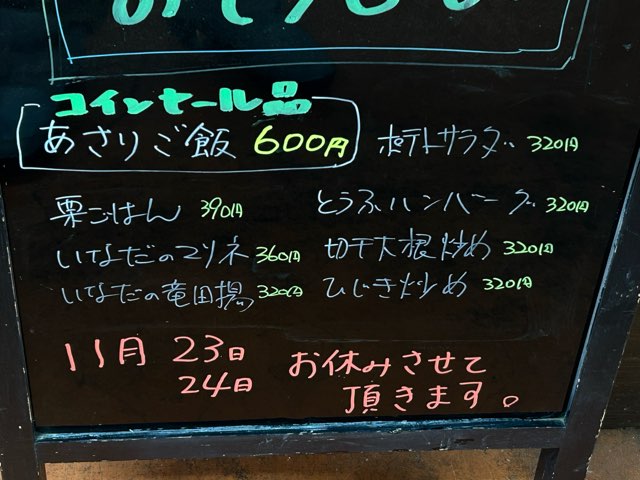 コインセール品
あさりご飯 600円
ポテトサラダ 320円
栗ごはん 390円
とうふハンバーグ 320円
いなだのマリネ 360円
切干大根炒め 320円
いなだの竜田揚 320円
ひじき炒め 320円
11月 23日
24日
お休みさせて
頂きます。